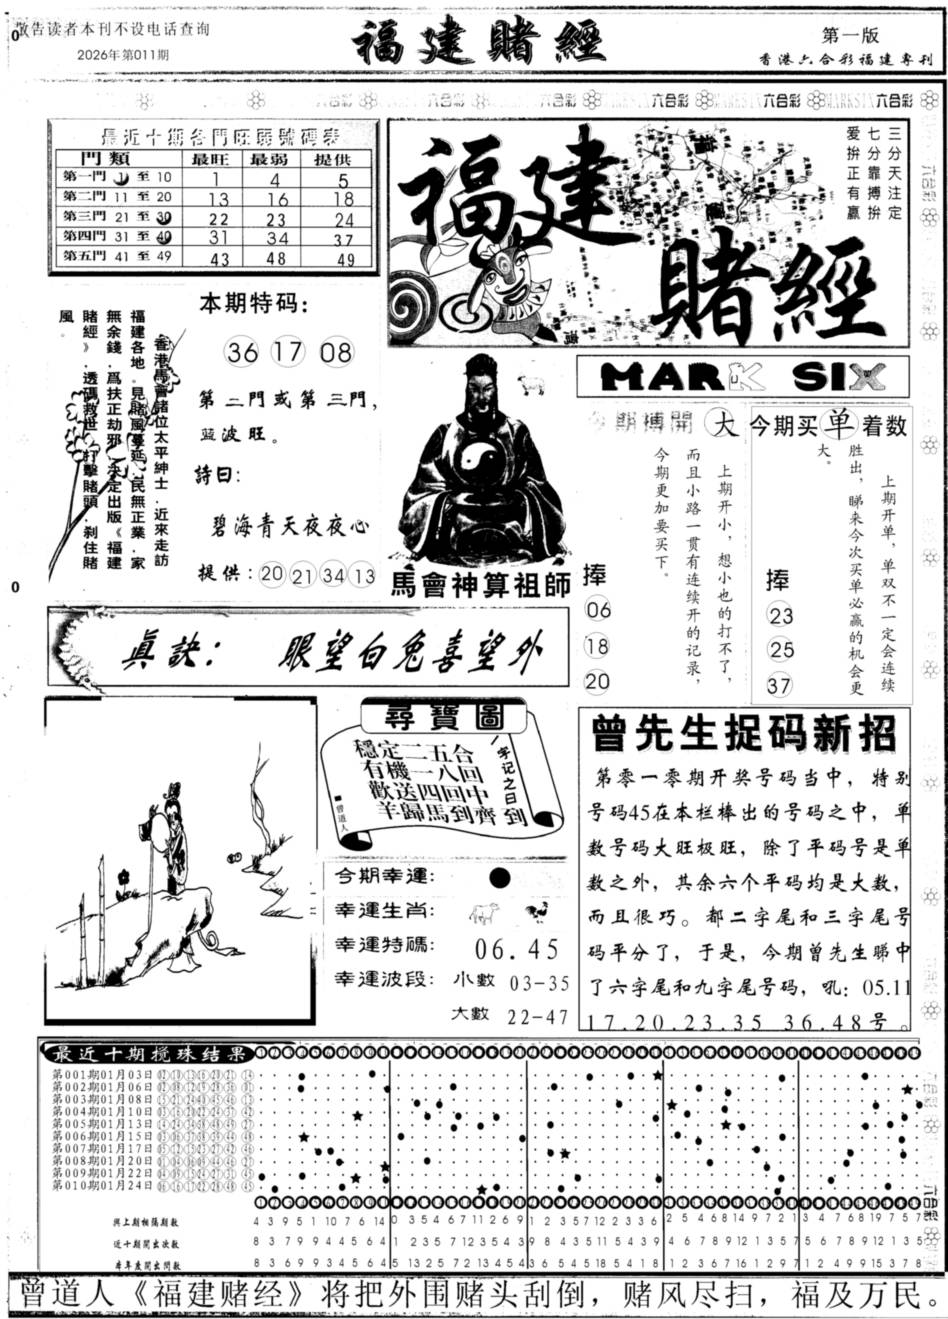 敬告读者本刊不设电话查询
2026年第011期
福建賭經
第一版
香港六合彩福建專刊
六合彩 六合彩 六合彩 六合彩 六合彩
最近十期各門旺弱號碼表
門類 最旺 最弱 提供
第一門 1 至 10 1 4 5
第二門 11 至 20 13 16 18
第三門 21 至 30 22 23 24
第四門 31 至 40 31 34 37
第五門 41 至 49 43 48 49
福建
賭經
三分天注定
七分靠搏拚
爱拚正有赢
本期特码:
36 17 08
第二門或第三門,
蓝波旺。
詩曰:
碧海青天夜夜心
提供: 20 21 34 13
香港馬會諸位太平紳士.近來走訪
福建各地.見賭風蔓延.民無正業.家
無余錢.爲扶正劫邪.决定出版《福建
賭經》.透碼救世.打擊賭頭.刹住賭
風.
馬會神算祖師
MARK SIX
今期搏開 大
上期开小，想小也的打不了，
而且小路一贯有连续开的记录，
今期更加要买下。
捧
06
18
20
今期买单着数
上期开单，单双不一定会连续
胜出，睇来今次买单必赢的机会更
大。
捧
23
25
37
真訣: 眼望白兔喜望外
尋寶圖
一字记之曰到
穩定二五合
有機一八回
歡送四回中
羊歸馬到齊
■曾道人
今期幸運: ●
幸運生肖:
幸運特碼: 06.45
幸運波段: 小數 03-35
大數 22-47
曾先生捉码新招
第零一零期开奖号码当中，特别
号码45在本栏棒出的号码之中，单
数号码大旺极旺，除了平码号是单
数之外，其余六个平码均是大数，
而且很巧。都二字尾和三字尾号
码平分了，于是，今期曾先生睇中
了六字尾和九字尾号码，吼: 05.11
17.20.23.35 36.48号。
最近十期搅珠结果
第001期01月03日
第002期01月06日
第003期01月08日
第004期01月10日
第005期01月13日
第006期01月15日
第007期01月17日
第008期01月20日
第009期01月22日
第010期01月24日
與上期相隔期數
近十期開出次數
本年度開出期數
曾道人《福建赌经》将把外围赌头刮倒，赌风尽扫，福及万民。